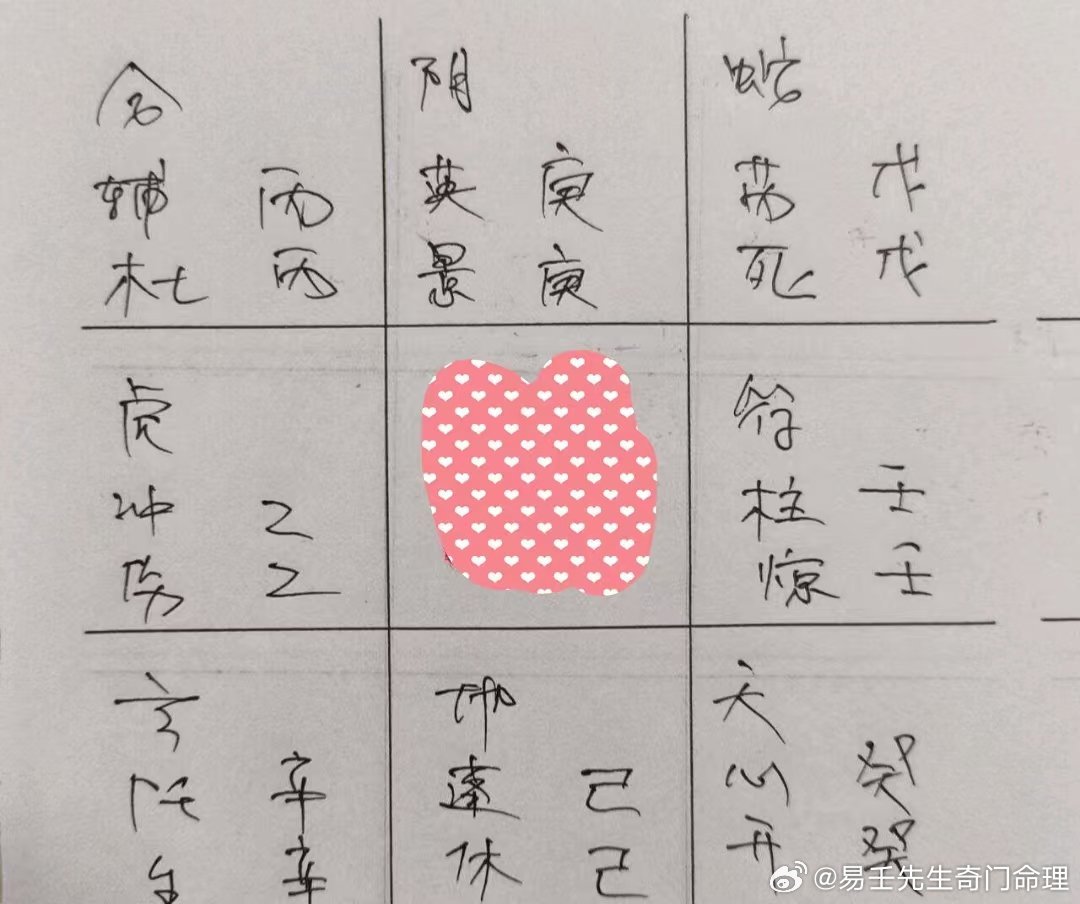 合
辅 丙
杜 丙
阴
英 庚
景 庚
蛇
芮 戊
死 戊
虎
冲 乙
伤 乙
符
柱 壬
惊 壬
玄
任 辛
生 辛
地
蓬 己
休 己
天
心 癸
开 癸
@易壬先生奇门命理